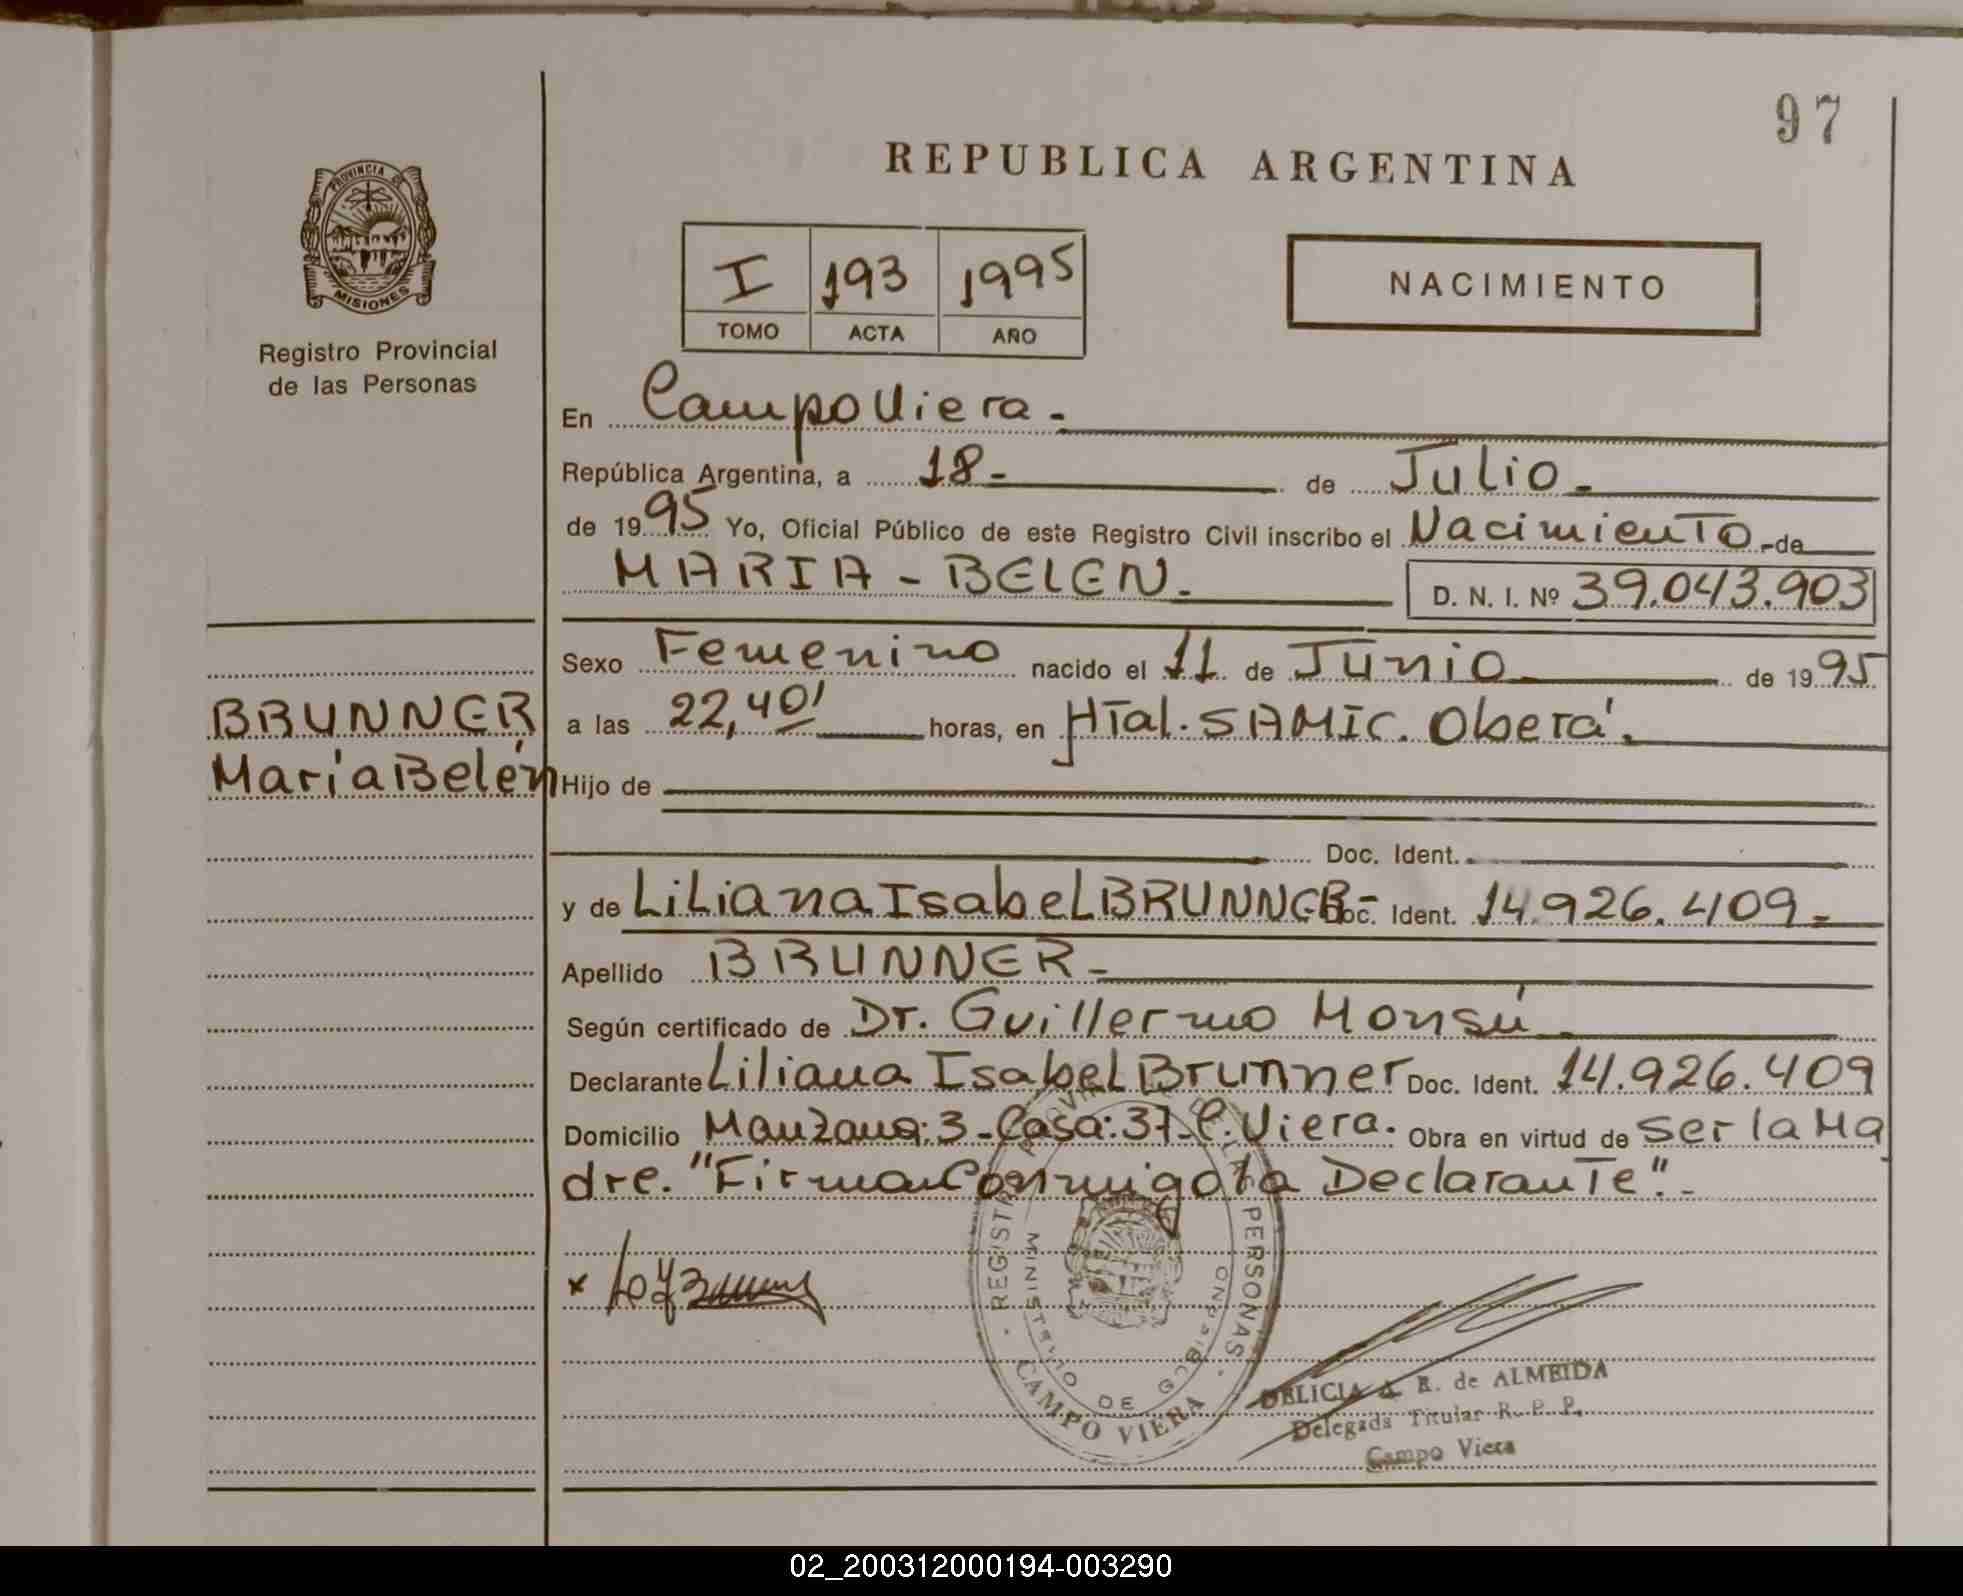 97
REPUBLICA ARGENTINA
PROVINCIA DE
MISIONES
Registro Provincial
de las Personas
I 193 1995
TOMO ACTA AÑO
NACIMIENTO
En Campo Viera.-
República Argentina, a 18- de Julio.-
de 1995 Yo, Oficial Público de este Registro Civil inscribo el Nacimiento-de
MARIA - BELEN.- D. N. I. Nº 39.043.903
Sexo Femenino nacido el 11 de Junio de 1995
BRUNNER
María Belén
a las 22,40' horas, en HTal. SAMIC. Oberá.
Hijo de
Doc. Ident.
y de Liliana Isabel BRUNNER- Doc. Ident. 14.926.409-
Apellido BRUNNER-
Según certificado de Dr. Guillermo Monsú.
Declarante Liliana Isabel Brunner Doc. Ident. 14.926.409
Domicilio Manzana: 3-Casa: 37-C. Viera. Obra en virtud de ser la Ma
dre. "Firma Conmigo la Declarante".-
REGISTRO PERSONAS
MINISTERIO DE GOBIERNO
CAMPO VIERA
DELICIA A. R. de ALMEIDA
Delegada Titular R. P. P.
Campo Viera
02_200312000194-003290